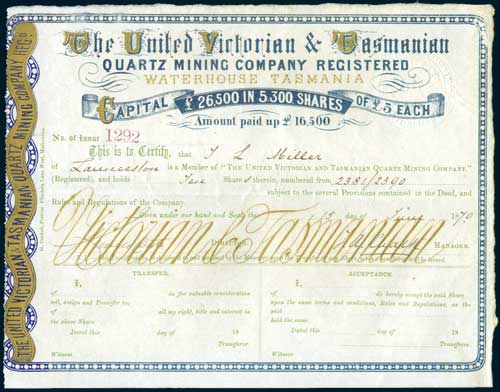 The United Victorian & Tasmanian
QUARTZ MINING COMPANY REGISTERED
WATERHOUSE TASMANIA
CAPITAL £26,500 IN 5,300 SHARES OF £5 EACH
Amount paid up £16,500
No. of Issue 1292
This is to Certify, that T L Miller
of Launceston is a Member of "THE UNITED VICTORIAN AND TASMANIAN QUARTZ MINING COMPANY."
(Registered), and holds Ten Shares therein, numbered from 2381/2390
subject to the several Provisions contained in the Deed, and
Rules and Regulations of the Company.
Given under our hand and Seal, the 15 day of June 1870
Victorian & Tasmanian
DIRECTOR. MANAGER.
TRANSFER. ACCEPTANCE.
I, I,
of do for valuable consideration of do hereby accept the said Share
sell, assign and Transfer to upon the same terms and conditions, Rules and Regulations, as the
of all my right, title and interest in said
the above Share held the same.
Dated this day of 18 Dated this day of 18
Transferor. Transferee.
Witness Witness
THE UNITED VICTORIAN & TASMANIAN QUARTZ MINING COMPANY REGD